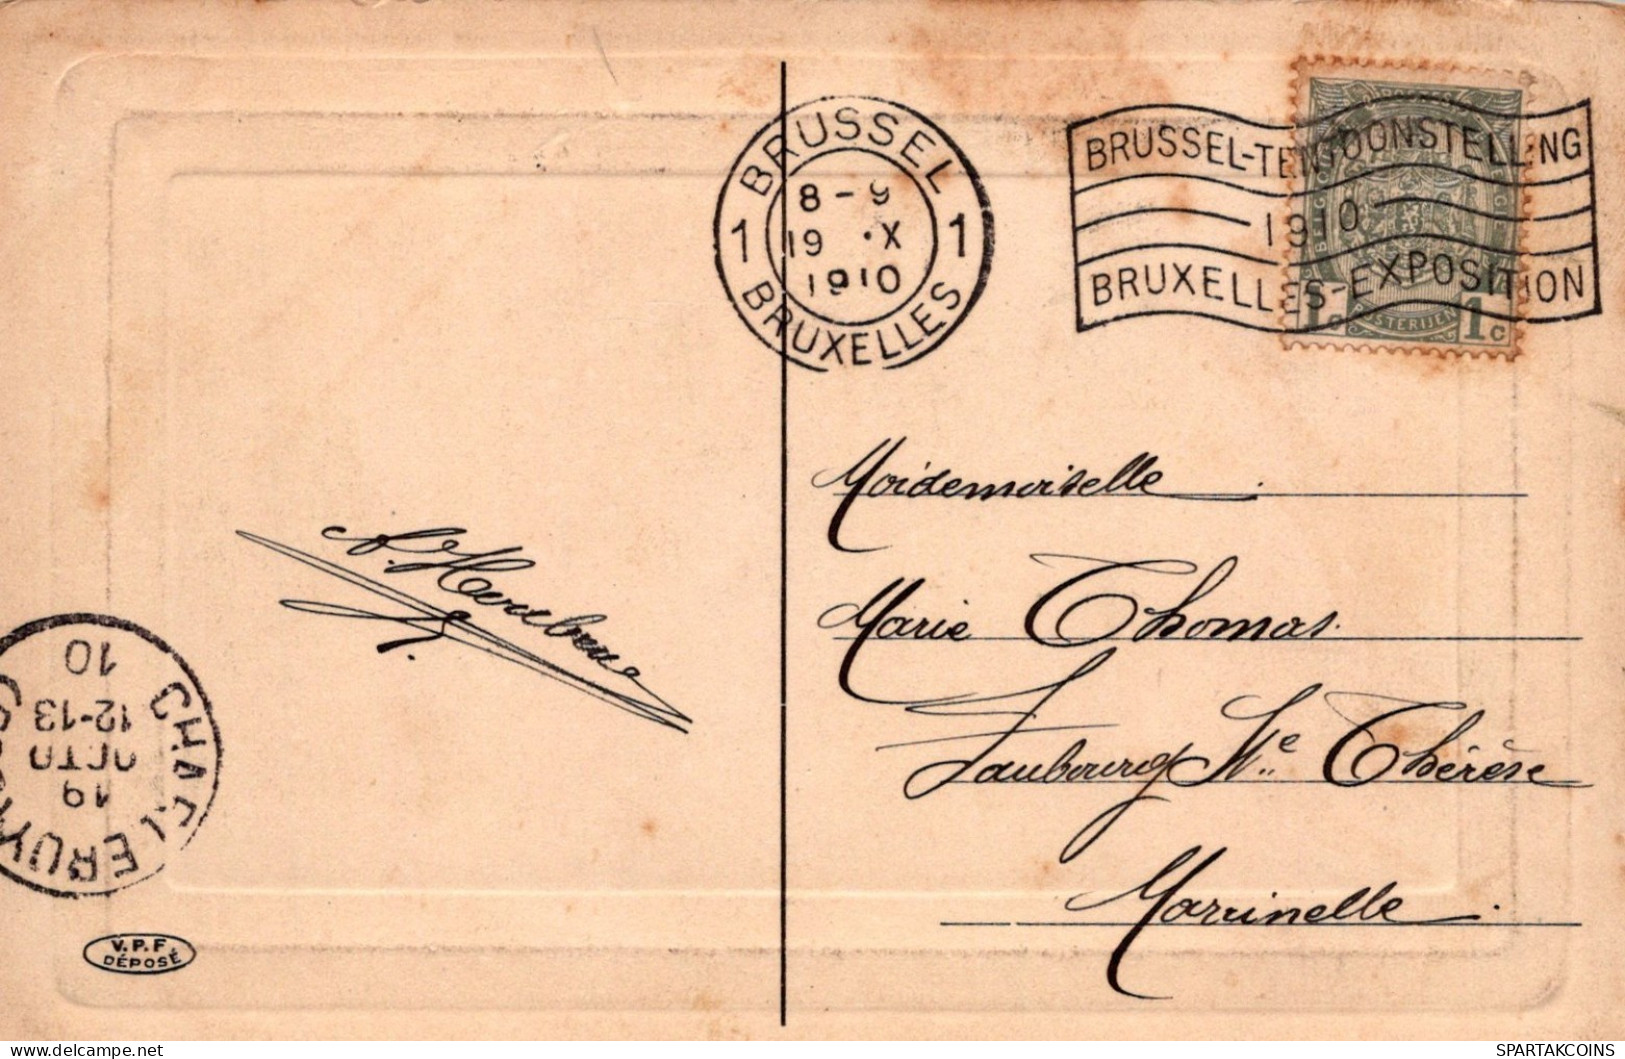 BRUSSEL
8-9
1 19 X 1
1910
BRUXELLES
BRUSSEL-TENTOONSTELLING
1910
BRUXELLES-EXPOSITION
1c POSTERIJEN 1c
Moidemoiselle
Marie Thomas.
Faubourg Ste Thérèse
Marcinelle.
A.
10
12-13
OCTO
19
CHARLEROY
V.P.F.
DÉPOSÉ
delcampe.net
SPARTAKCOINS